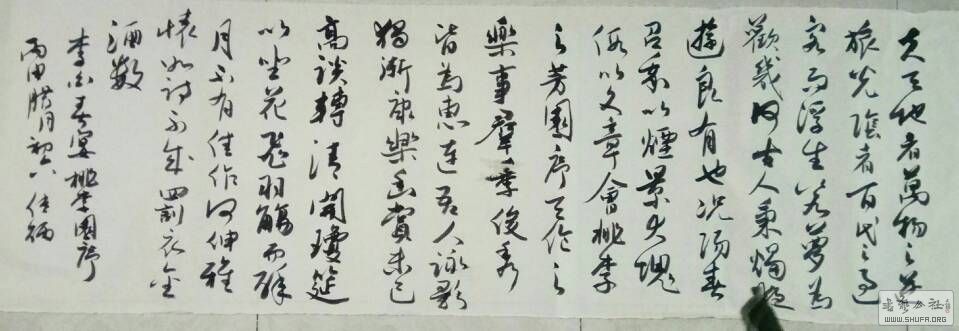 夫天地者萬物之逆
旅光陰者百代之過
客而浮生若夢為
歡幾何古人秉燭夜
遊良有也況陽春
召我以煙景大塊
假以文章會桃李
之芳園序天倫之
樂事群季俊秀
皆為惠連吾人詠歌
獨漸康樂幽賞未已
高談轉清開瓊筵
以坐花飛羽觴而醉
月不有佳作何伸雅
懷如詩不成罰衣金
酒數
李白春宴桃李園序
丙申腊月初八
书艺公社
WWW.SHUFA.ORG